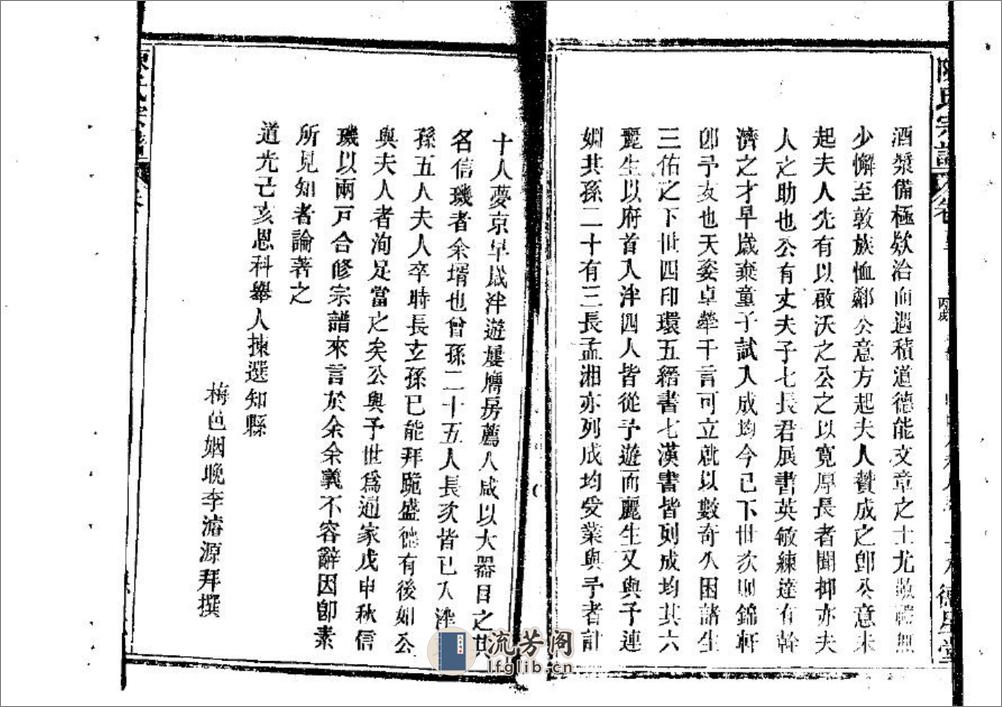 陳氏宗譜
酒漿備極欵洽而遇積道德能文章之士尤敬禮無
少懈至敦族恤鄰公意方起夫人贊成之卽公意未
起夫人先有以啟沃之公之以寬厚長者聞抑亦夫
人之助也公有丈夫子七長君展書英敏練達有幹
濟之才早歲棄童子試入成均今已下世次則錦軒
卽予友也天姿卓犖千言可立就以數奇久困諸生
三佑之下世四印環五縉書七漢書皆列成均其六
麗生以府首入泮四人皆從予遊而麗生又與予連
姻其孫二十有三長孟湘亦列成均受業與予者計
十人夢京早歲泮遊屢膺房薦人咸以大器目之其
名信璣者余壻也曾孫二十五人長次皆已入泮
孫五人夫人卒時長玄孫已能拜跪盛德有後如公
與夫人者洵足當之矣公與予世爲通家戊申秋信
璣以兩戶合修宗譜來言於余余義不容辭因卽素
所見知者論著之
道光己亥恩科舉人揀選知縣
梅邑姻晚李濬源拜撰
陳氏宗譜
流芳阁
lfglib.cn